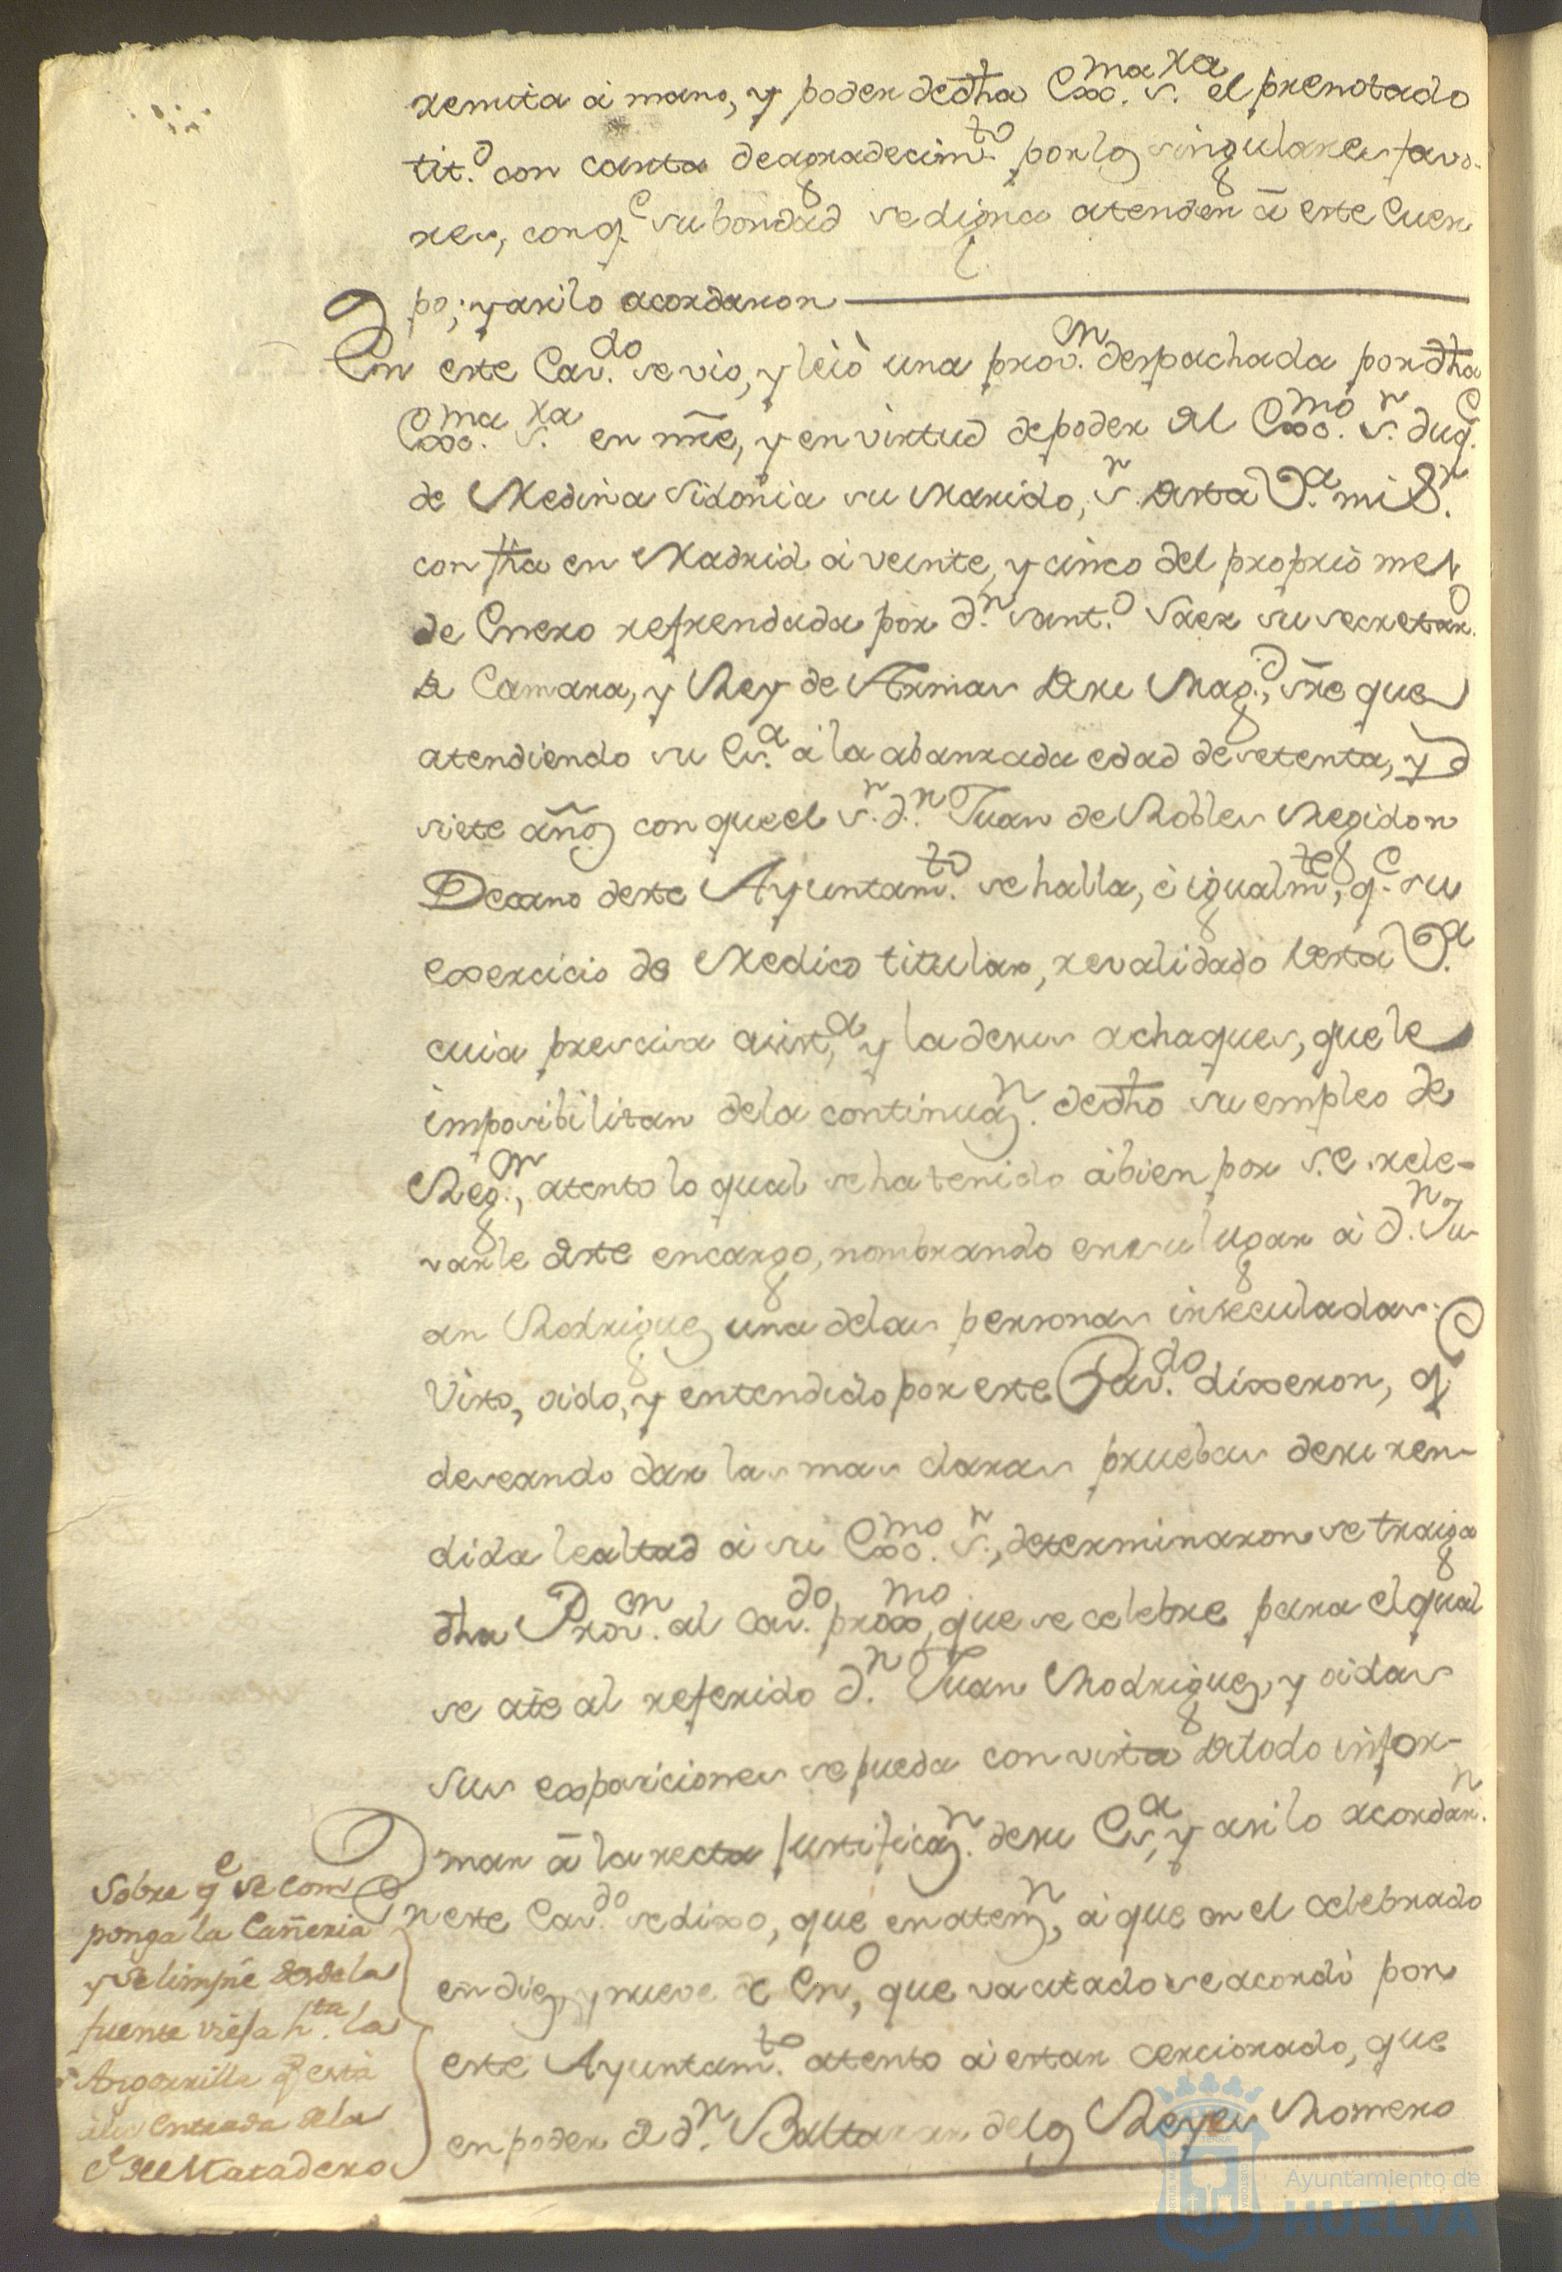 remita â mano, y poder dedha Exc.ma S.ra el prenotado
tit.o con carta deagradecim.to por los singulares favo-
res, conq.e su bondad sedigna atender â este Cuer
po; y asilo acordaron
En este Cav.do se vio, y leiò una prov.on despachada por dha
Exc.ma S.ra en nrê, y en virtud depoder del Exc.mo S.r duq.e
de Medina Sidonia su Marido, S.r desta V.a mi S.r
con fha en Madrid â veinte, y cinco del proprio mes
de Enero refrendada por d.n Sant.o Saez su secretar.o
de Camara, y Rey de Armas desu Mag.d, sre que
atendiendo su Ex.a â la abanzada edad desetenta, y
siete años con queel S.r d.n Juan de Robles Regidor
Decano deste Ayuntam.to sehalla, è igualm.te, q.e su
exercicio de Medico titular, revalidado desta V.a
cuia precisa asist.a y la desus achaques, quele
imposibilitan dela continuaz.n dedho su empleo de
Reg.or, atento lo qual sehatenido âbien por S.E. rele-
varle deste encargo, nombrando ensulugar â d.n Ju-
an Rodriguez una delas personas inseculadas.
Visto, oido, y entendido por este Cav.do dixeron, q.e
deseando dar las mas claras pruebas desu ren-
dida lealtad â su Exc.mo S.r, determinaron se traiga
dha Prov.on al Cav.do prox.mo, que se celebre para elqual
se cite al referido d.n Juan Rodriguez, y oidas
sus exposiciones sepueda con vista detodo infor-
mar â la recta justificaz.n desu Ex.a, y asilo acordar.n
En este Cav.do sedixo, que enatenz.n, â que en el celebrado
en diez, y nueve de En.o, que va citado seacordò por
este Ayuntam.to atento â estar cercionado, que
enpoder de d.n Baltasar delos Reyes Romero
Sobre q.e se com
ponga la Cañeria
y se limpie desde la
fuente viejа h.ta la
Argorrilla q está
â la Entrada dela
C.e del Matadero
Ayuntamiento de
HUELVA